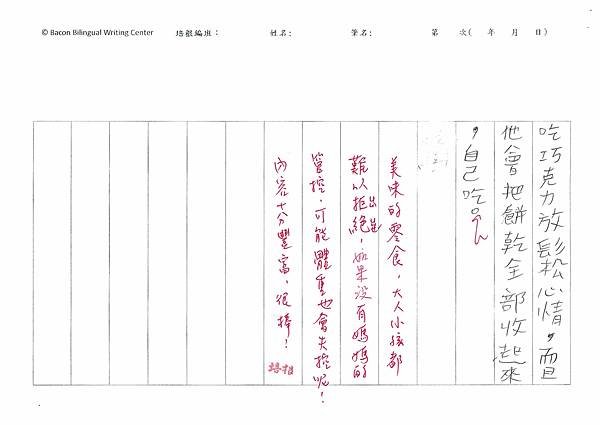 © Bacon Bilingual Writing Center 培根編班： 姓名： 筆名： 第 次( 年 月 日)
吃巧克力放鬆心情，而且
他會把餅乾全部收起來
，自己吃。
美味的零食，大人小孩都
難以拒絕，如果沒有媽媽的
管控，可能體重也會失控呢！
內容十分豐富，很棒！